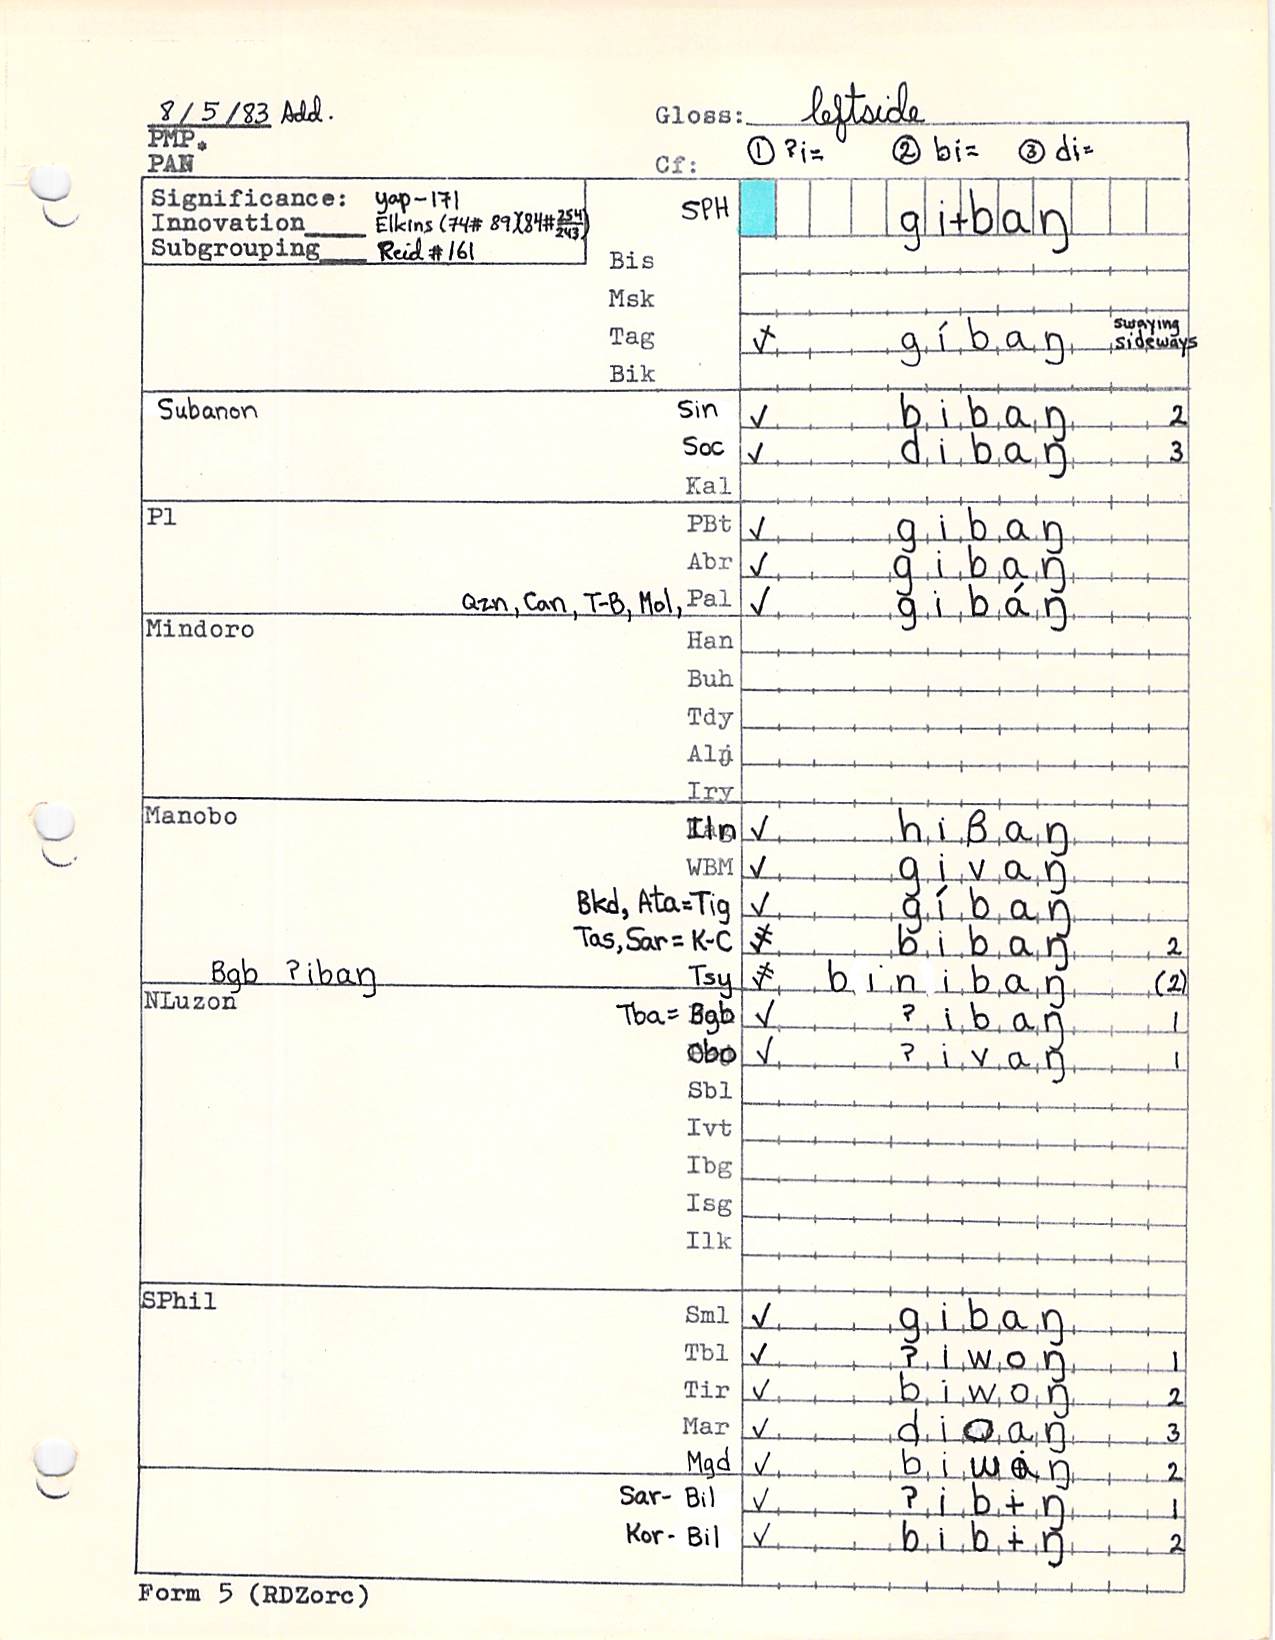 8/5/83 Add. Gloss: leftside
PMP.
PAN Cf: ① ʔi= ② bi= ③ di=
Significance: yap-171 SPH gi+baŋ
Innovation Elkins (74# 89)(84# 254/243)
Subgrouping Reid #161
Bis
Msk
Tag gíbaŋ swaying sideways
Bik
Subanon Sin ✓ bibaŋ 2
Soc ✓ dibaŋ 3
Kal
Pl PBt ✓ gibaŋ
Abr ✓ gibaŋ
Qzn, Can, T-B, Mol, Pal ✓ gibáŋ
Mindoro
Han
Buh
Tdy
Alj
Iry
Manobo Iln ✓ hiβaŋ
WBM ✓ givaŋ
Bkd, Ata=Tig ✓ gíbaŋ
Tas, Sar = K-C bibaŋ 2
Bgb ʔibaŋ Tsy binibaŋ (2)
NLuzon Tba= Bgb ✓ ʔibaŋ 1
Obo ✓ ʔivaŋ 1
Sbl
Ivt
Ibg
Isg
Ilk
SPhil
Sml ✓ gibaŋ
Tbl ✓ ʔiwoŋ 1
Tir ✓ biwoŋ 2
Mar ✓ dioaŋ 3
Mgd ✓ biwaŋ 2
Sar- Bil ✓ ʔibɨŋ 1
Kor- Bil ✓ bibɨŋ 2
Form 5 (RDZorc)